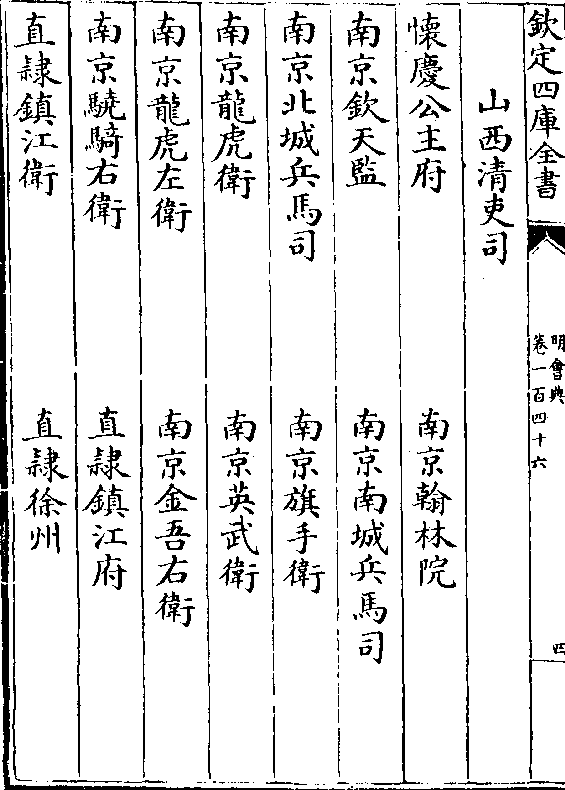 欽定四庫全書
明會典
卷一百四十六
四
山西清吏司
懷慶公主府　南京翰林院
南京欽天監　南京南城兵馬司
南京北城兵馬司　南京旗手衛
南京龍虎衛　南京英武衛
南京龍虎左衛　南京金吾右衛
南京驍騎右衛　直隸鎮江府
直隸鎮江衛　直隸徐州